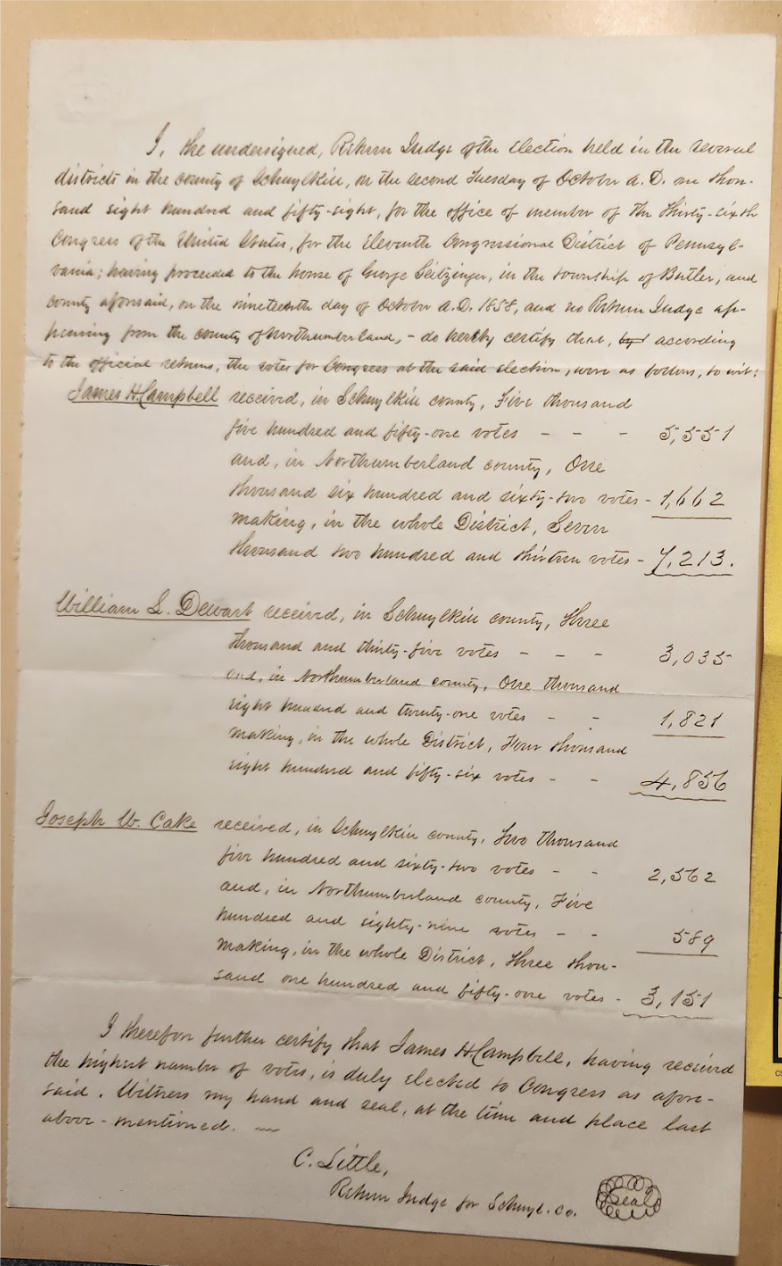 I, the undersigned, Return Judge of the Election held in the several
districts in the county of Schuylkill, on the second Tuesday of October A.D. one thou-
sand eight hundred and fifty-eight, for the office of member of the Thirty-sixth
Congress of the United States, for the Eleventh Congressional District of Pennsyl-
vania; having proceeded to the house of George Seitzinger, in the township of Butler, and
county aforesaid, on the nineteenth day of October A.D. 1858, and no Return Judge ap-
pearing from the county of Northumberland, - do hereby certify that, according
to the official returns, the votes for Congress at the said election, were as follows, to wit:
James H. Campbell received, in Schuylkill county, Five thousand
five hundred and fifty-one votes - - - 5,551
and, in Northumberland county, One
thousand six hundred and sixty-two votes - 1,662
making, in the whole District, Seven
thousand two hundred and thirteen votes - 7,213.
William L. Dewart received, in Schuylkill county, Three
thousand and thirty-five votes - - - 3,035
and, in Northumberland county, One thousand
eight hundred and twenty-one votes - - 1,821
making, in the whole District, Four thousand
eight hundred and fifty-six votes - - 4,856
Joseph W. Cake received, in Schuylkill county, Two thousand
five hundred and sixty-two votes - - 2,562
and, in Northumberland county, Five
hundred and eighty-nine votes - - 589
making, in the whole District, Three thou-
sand one hundred and fifty-one votes - 3,151
I therefore further certify that James H. Campbell, having received
the highest number of votes, is duly elected to Congress as afore-
said. Witness my hand and seal, at the time and place last
above-mentioned. —
C. Little,
Return Judge for Schuyl. Co. Seal